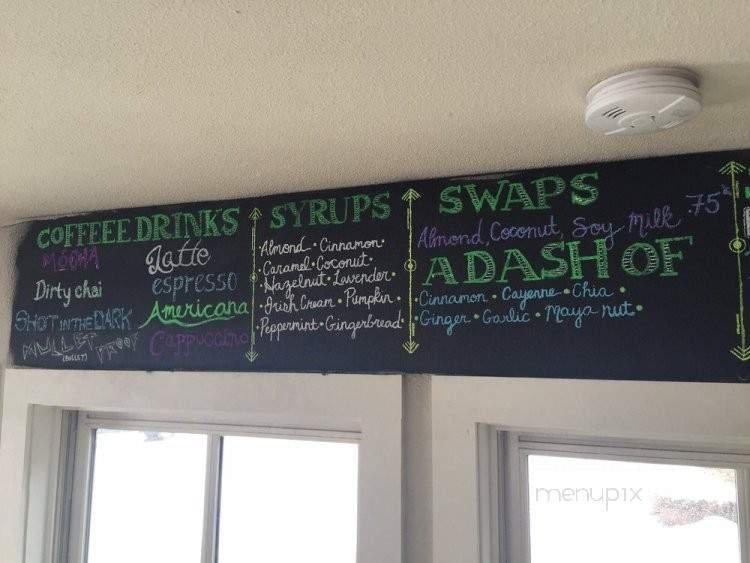 COFFEEE DRINKS
MOCHA
Latte
Dirty chai
espresso
SHOT IN THE DARK
Americana
MULLET PROOF
(BULLET)
Cappuccino
SYRUPS
Almond • Cinnamon •
Caramel • Coconut •
• Hazelnut • Lavender •
• Irish Cream • Pumpkin •
Peppermint • Gingerbread •
SWAPS
Almond, Coconut, Soy Milk .75¢
A DASH OF
• Cinnamon • Cayenne • Chia •
• Ginger • Garlic • Maya nut •
menupix